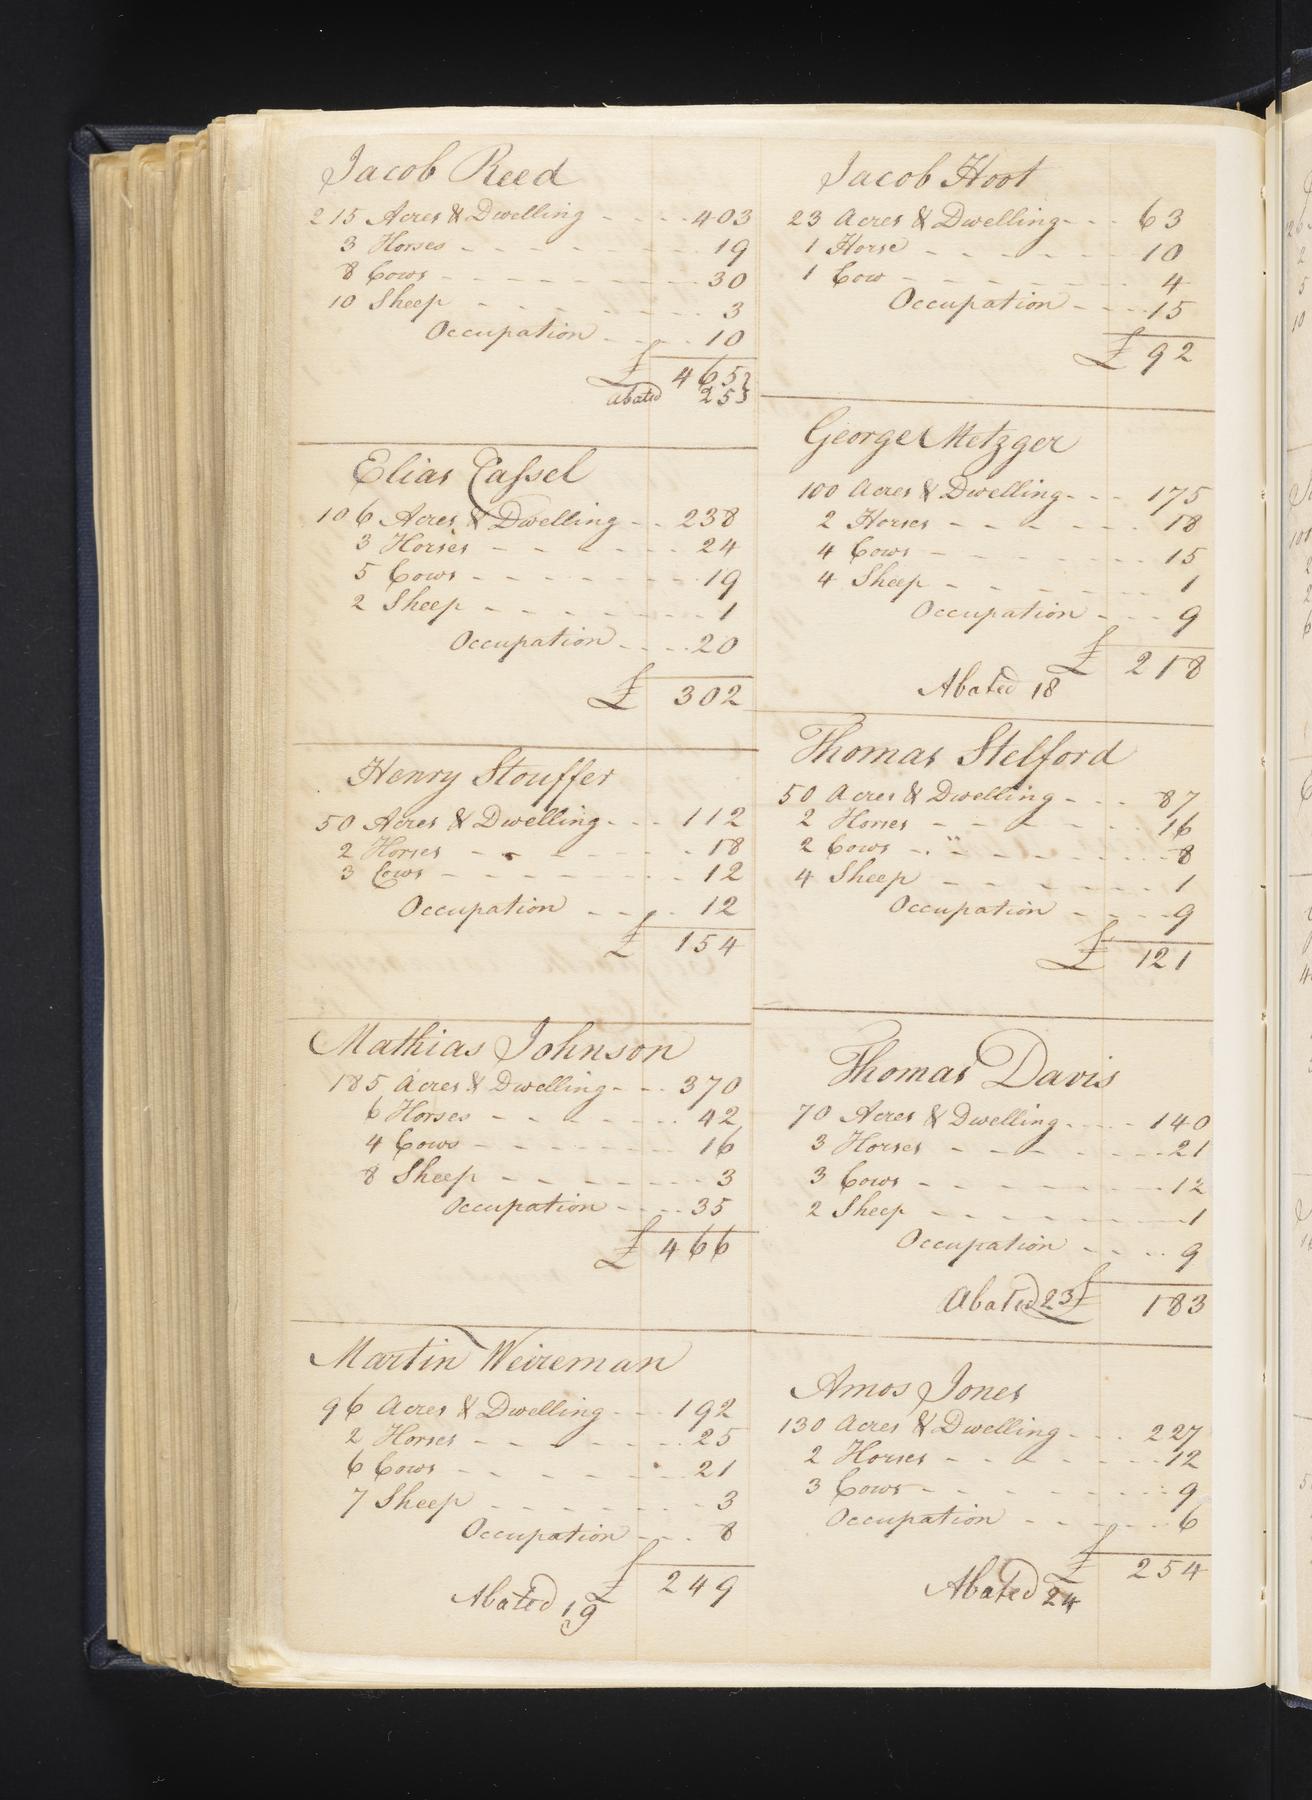 Jacob Reed
215 Acres & Dwelling - - - - 403
3 Horses - - - - - - - 19
8 Cows - - - - - - - - 30
10 Sheep - - - - - - - 3
Occupation - - - - 10
£ 465
Abated 25
Elias Cassel
106 Acres & Dwelling - - 238
3 Horses - - - - - - 24
5 Cows - - - - - - - - 19
2 Sheep - - - - - - - 1
Occupation - - - - 20
£ 302
Henry Stouffer
50 Acres & Dwelling - - - 112
2 Horses - - - - - - 18
3 Cows - - - - - - - - 12
Occupation - - - - 12
£ 154
Mathias Johnson
185 Acres & Dwelling - - - 370
6 Horses - - - - - - - 42
4 Cows - - - - - - - 16
8 Sheep - - - - - - - - 3
Occupation - - - - 35
£ 466
Martin Weireman
96 Acres & Dwelling - - - 192
2 Horses - - - - - - - 25
6 Cows - - - - - - - 21
7 Sheep - - - - - - - 3
Occupation - - - 8
£ 249
Abated 19
Jacob Hoot
23 Acres & Dwelling - - - 63
1 Horse - - - - - - 10
1 Cow - - - - - - 4
Occupation - - - - 15
£ 92
George Metzger
100 Acres & Dwelling - - - 175
2 Horses - - - - - - 18
4 Cows - - - - - - 15
4 Sheep - - - - - - 1
Occupation - - - 9
£ 218
Abated 18
Thomas Stelford
50 Acres & Dwelling - - - 87
2 Horses - - - - - - 16
2 Cows - - - - - - - 8
4 Sheep - - - - - - 1
Occupation - - - - 9
£ 121
Thomas Davis
70 Acres & Dwelling - - - - 140
3 Horses - - - - - - - 21
3 Cows - - - - - - - 12
2 Sheep - - - - - - 1
Occupation - - - - 9
Abated 23 £ 183
Amos Jones
130 Acres & Dwelling - - - 227
2 Horses - - - - - - - 12
3 Cows - - - - - - - 9
Occupation - - - - - 6
£ 254
Abated 24